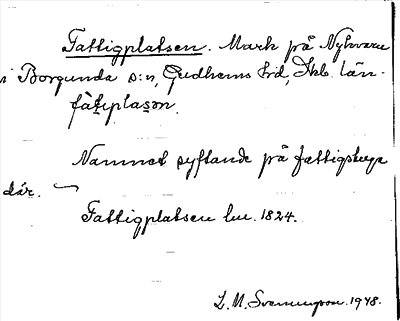 Fattigplatsen. Mark på Nykvarn
i Borgunda s:n, Gudhems hrd, Skb. län.
fàt̯iplas̯ən.
Namnet syftande på fattigstuga
där.
Fattigplatsen lm. 1824.
L. M. Svenungson. 1948.